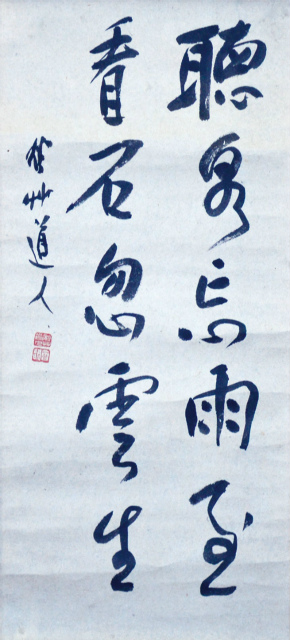 聽泉忘雨至
看石忽雲生
道人